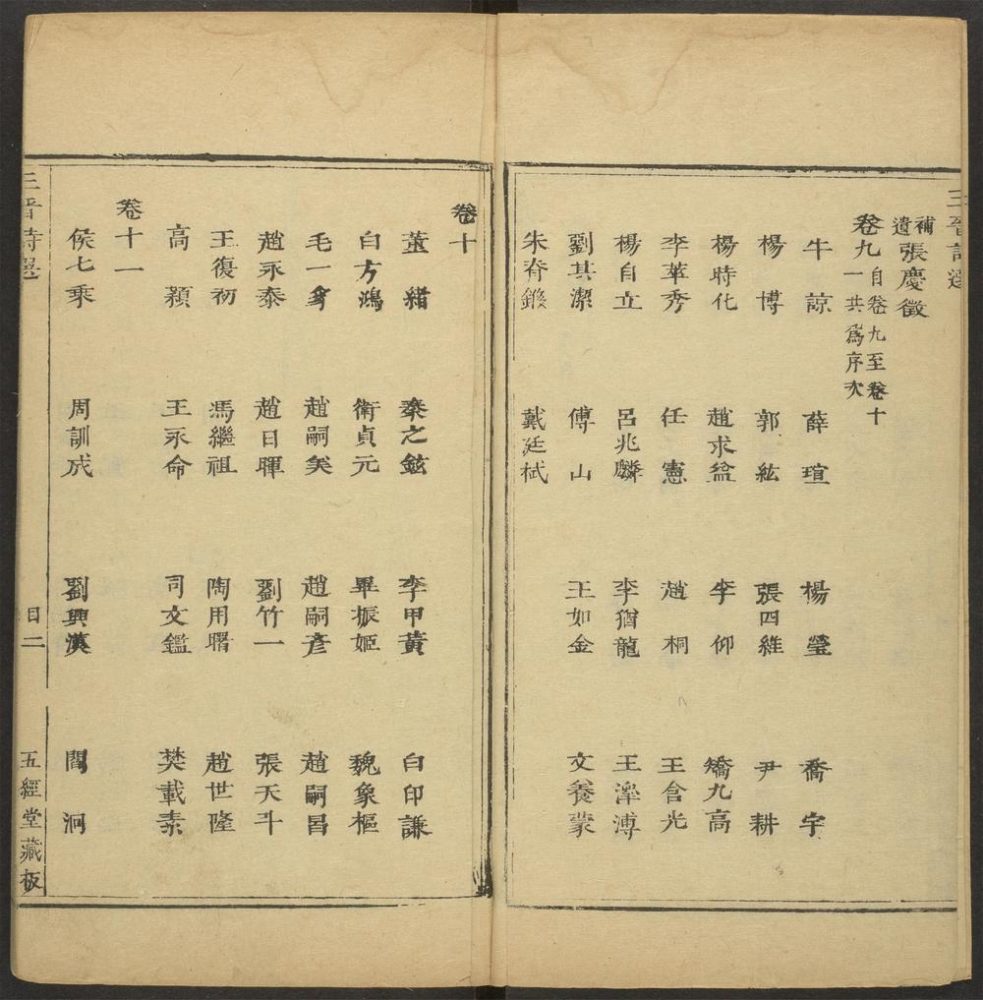 三晉詩選
補遺張慶徵
卷九自卷九至卷十一共爲序次
牛諒 薛瑄 楊瑩 喬宇
楊博 郭紘 張四維 尹耕
楊時化 趙求益 李仰 矯九高
李莘秀 任憲 趙桐 王含光
楊自立 呂兆麟 李猶龍 王澤溥
劉其潔 傅山 王如金 文養蒙
朱脊鏃 戴廷栻
卷十
董緒 秦之鉉 李甲黃 白印謙
白方鴻 衛貞元 畢振姬 魏象樞
毛一豸 趙嗣美 趙嗣彥 趙嗣昌
趙永泰 趙日暉 劉竹一 張天斗
王復初 馮繼祖 陶用曙 趙世隆
高潁 王永命 司文鑑 樊載素
卷十一
侯七乘 周訓成 劉興漢 閻泂
三晉詩選 目二 五經堂藏板